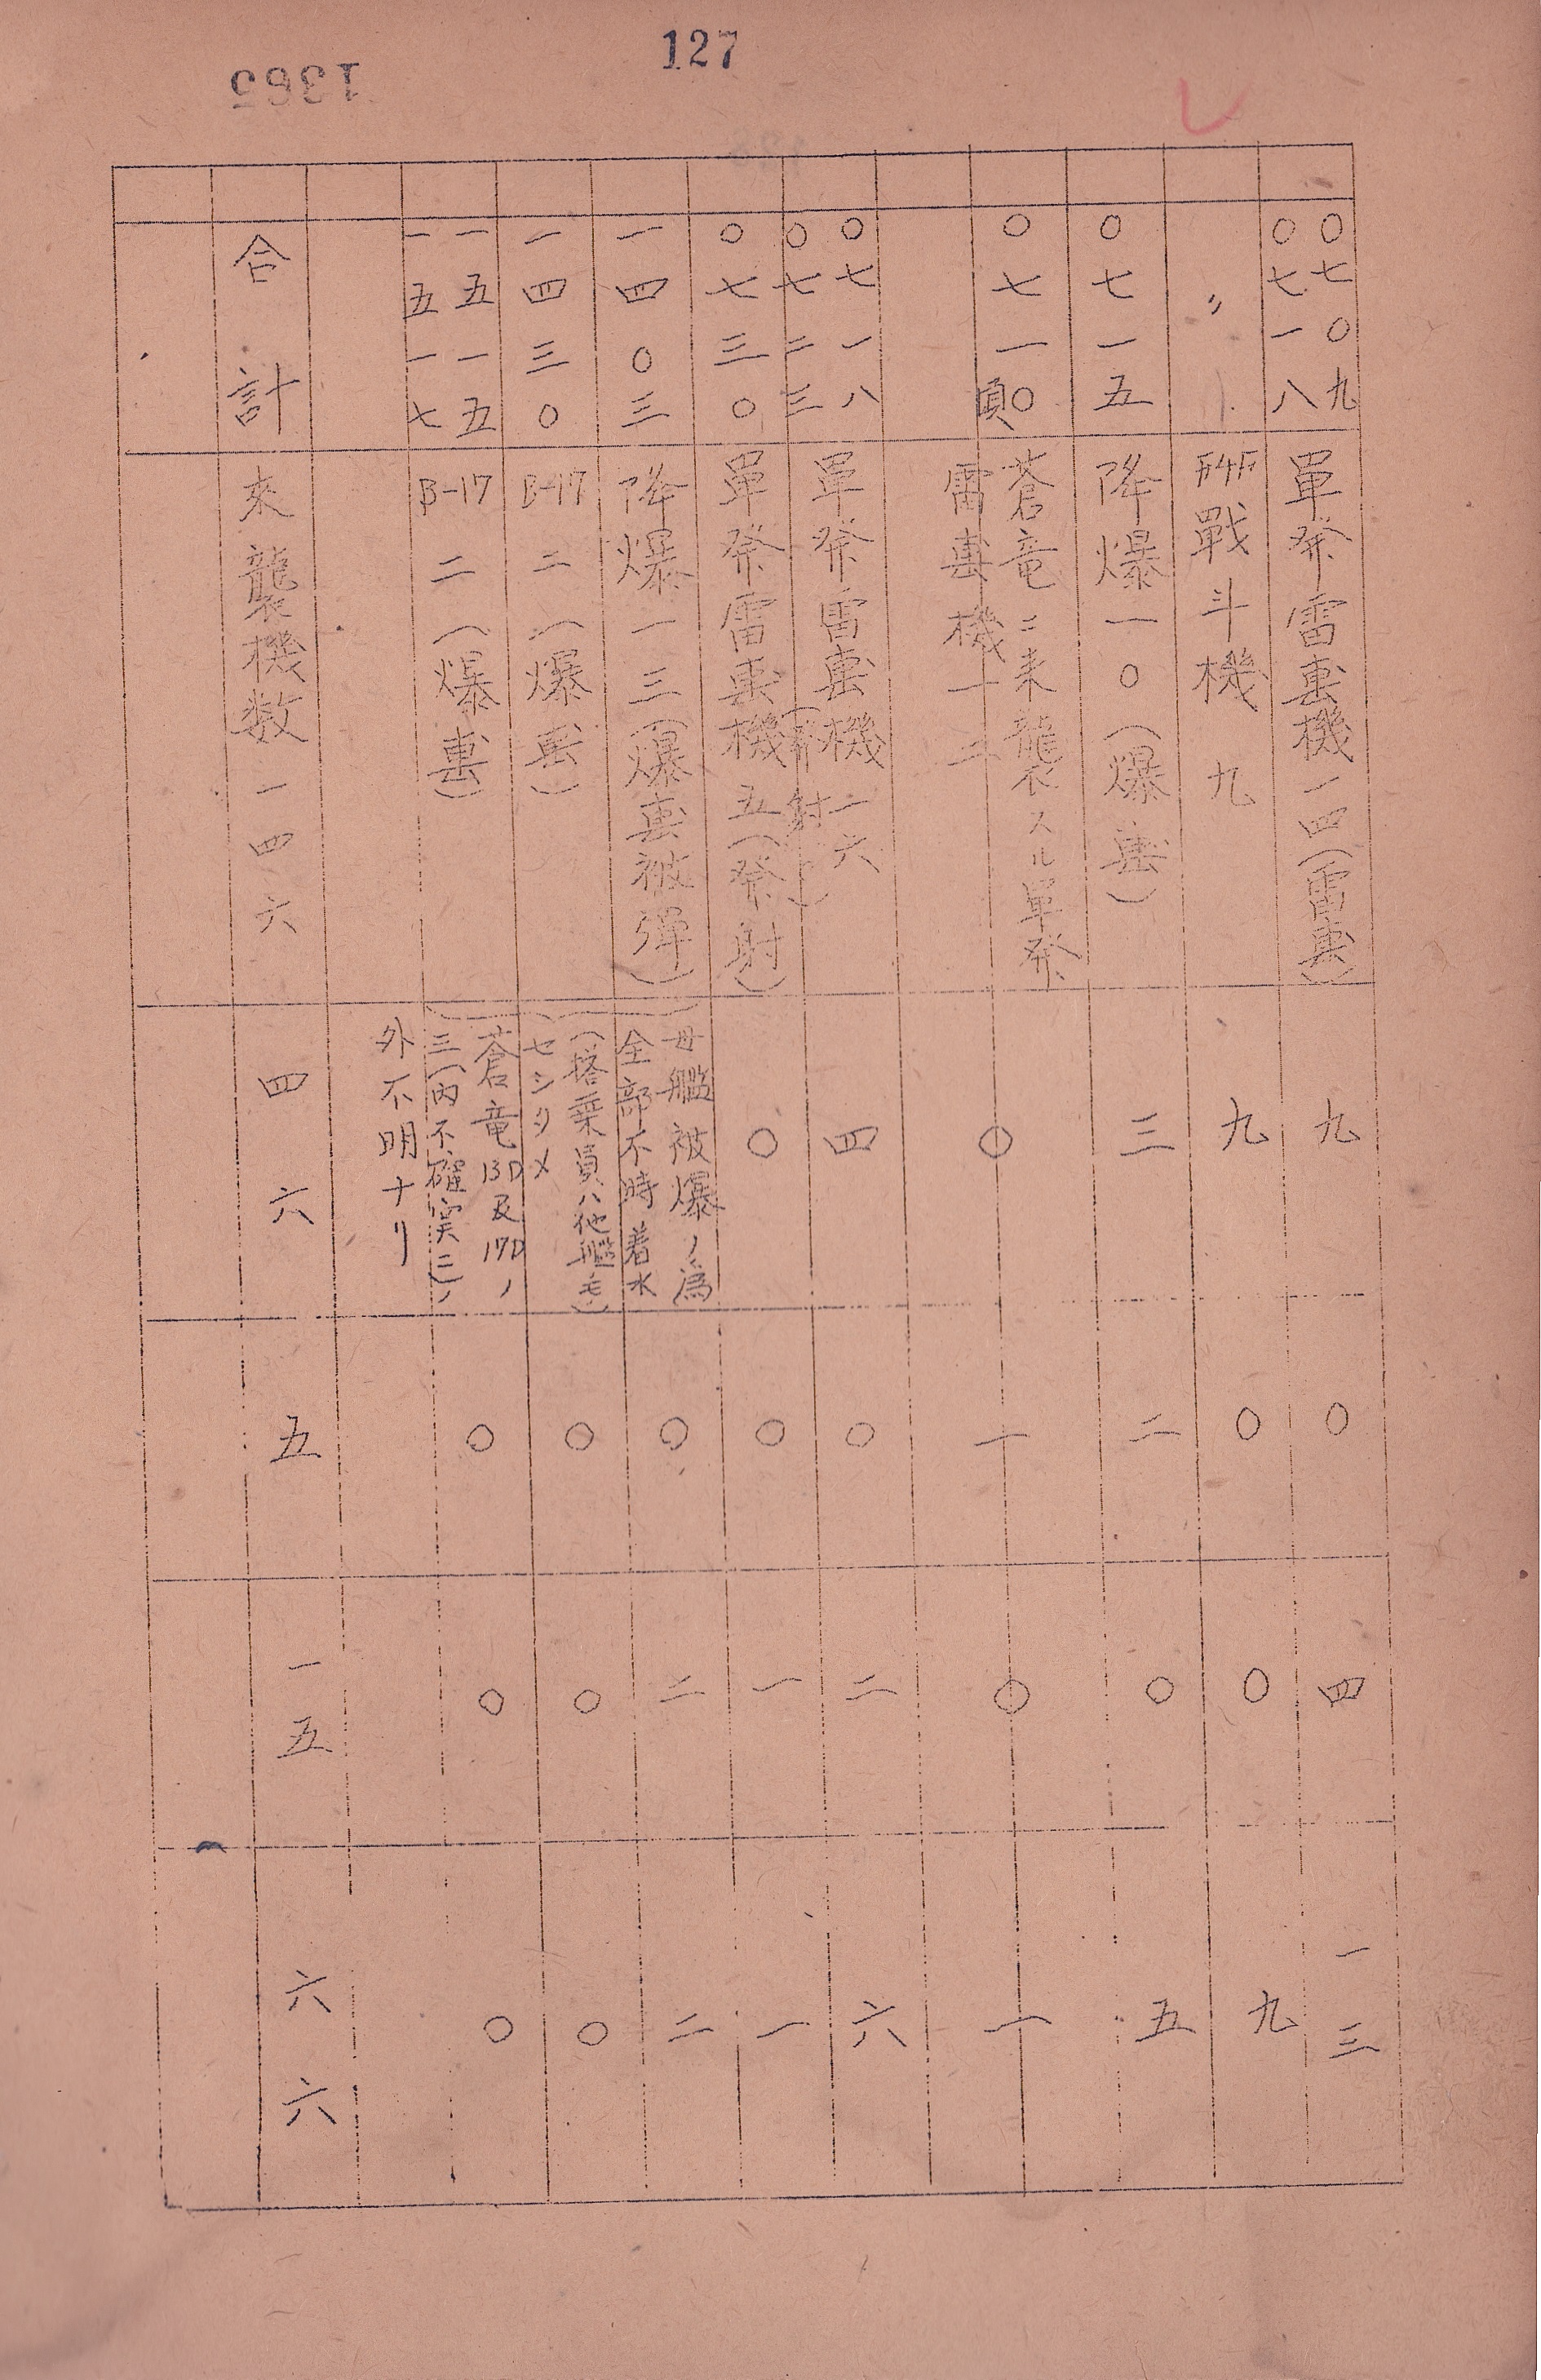 127
1365
〇七〇九
〇七一八
單発雷撃機一四(雷撃)
九
〇
四
一三
〃
F4F戰斗機九
九
〇
〇
九
〇七一五
降爆一〇(爆撃)
三
二
〇
五
〇七一〇頃
蒼竜ニ来襲スル單発
雷撃機一二
〇
一
〇
一
〇七一八
〇七二三
單発雷撃機一六
(発射)
四
〇
二
六
〇七三〇
單発雷撃機五(発射)
〇
〇
一
一
一四〇三
降爆一三(爆撃被弾)
母艦被爆ノ為
全部不時着水
(搭乗員ハ他艦
セシタメ
蒼竜13D及17Dノ
三(内不確実二)ノ
外不明ナリ
〇
二
二
一四三〇
B-17 二(爆撃)
〇
〇
〇
一五一五
一五一七
B-17 二(爆撃)
〇
〇
〇
合計
来襲機数一四六
四六
五
一五
六六